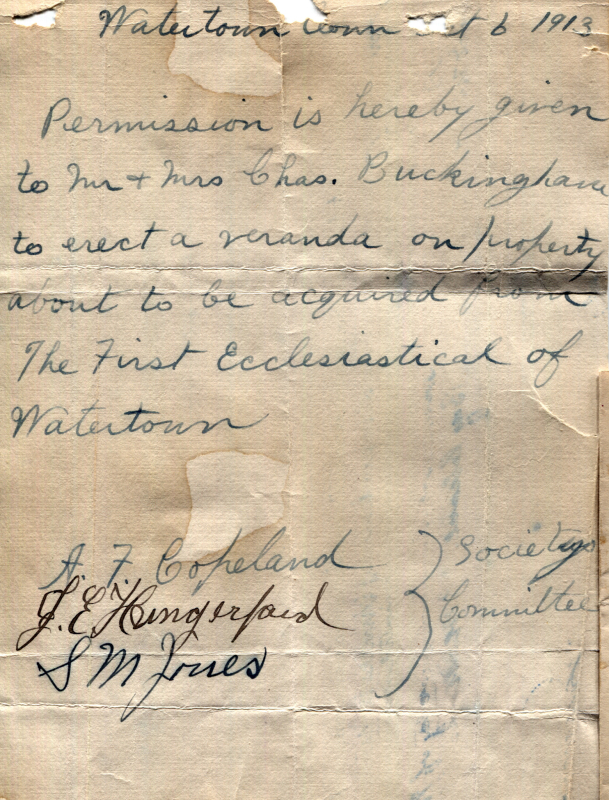 Watertown Conn Oct 6 1913
Permission is hereby given
to Mr + Mrs Chas. Buckingham
to erect a veranda on property
about to be acquired from
The First Ecclesiastical of
Watertown
A. F Copeland
J. E. Hungerford
S M Jones
Societys
Committee